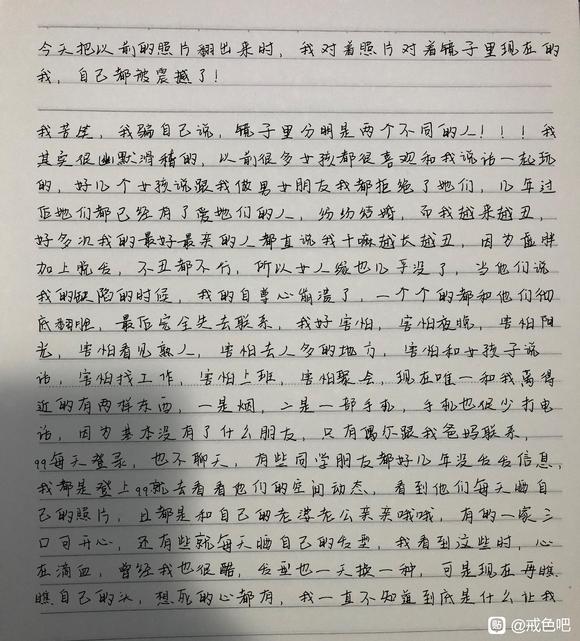 今天把以前的照片翻出来时，我对着照片对着镜子里现在的
我，自己都被震撼了！
我苦笑，我骗自己说，镜子里分明是两个不同的人！！！我
其实很幽默滑稽的，以前很多女孩都很喜欢和我说话一起玩
的，好几个女孩说跟我做男女朋友我都拒绝了她们，几年过
后她们都已经有了爱她们的人，纷纷结婚，而我越来越丑，
好多次我的最好最亲的人都直说我干嘛越长越丑，因为虚胖
加上脱发，不丑都不行，所以女人缘也几乎没了，当他们说
我的缺陷的时候，我的自尊心崩溃了，一个个的都和他们彻
底翻脸，最后完全失去联系，我好害怕，害怕夜晚，害怕阳
光，害怕看见熟人，害怕去人多的地方，害怕和女孩子说
话，害怕找工作，害怕上班，害怕聚会，现在唯一和我离得
近的有两样东西，一是烟，二是一部手机，手机也很少打电
话，因为基本没有了什么朋友，只有偶尔跟我爸妈联系，
qq每天登录，也不聊天，有些同学朋友都好几年没发发信息，
我都是登上qq就去看看他们的空间动态，看到他们每天晒自
己的照片，且都是和自己的老婆老公亲亲哦哦，有的一家三
口可开心，还有些就每天晒自己的发型，我看到这些时，心
在滴血，曾经我也很酷，发型也一天换一种，可是现在再瞧
瞧自己的头，想死的心都有，我一直不知道到底是什么让我
贴 @戒色吧